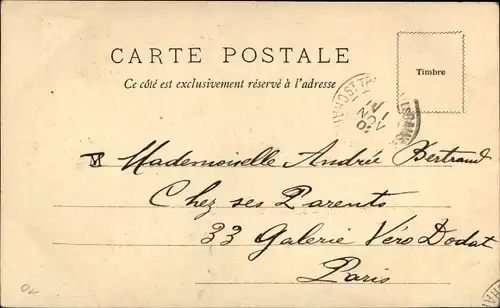 CARTE POSTALE
Ce côté est exclusivement réservé à l'adresse
Timbre
NOV
Mademoiselle Andrée Bertrand
Chez ses Parents
33 Galerie Véro Dodat
Paris